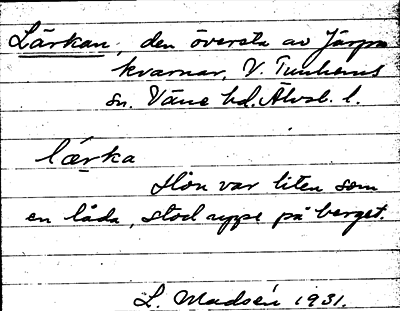 Lärkan, den översta av Järpa
kvarnar, V. Tunhems
sn. Väne hd. Älvsb. l.
lærka
Hon var liten som
en låda, stod uppe på berget.
L. Madsén 1931.